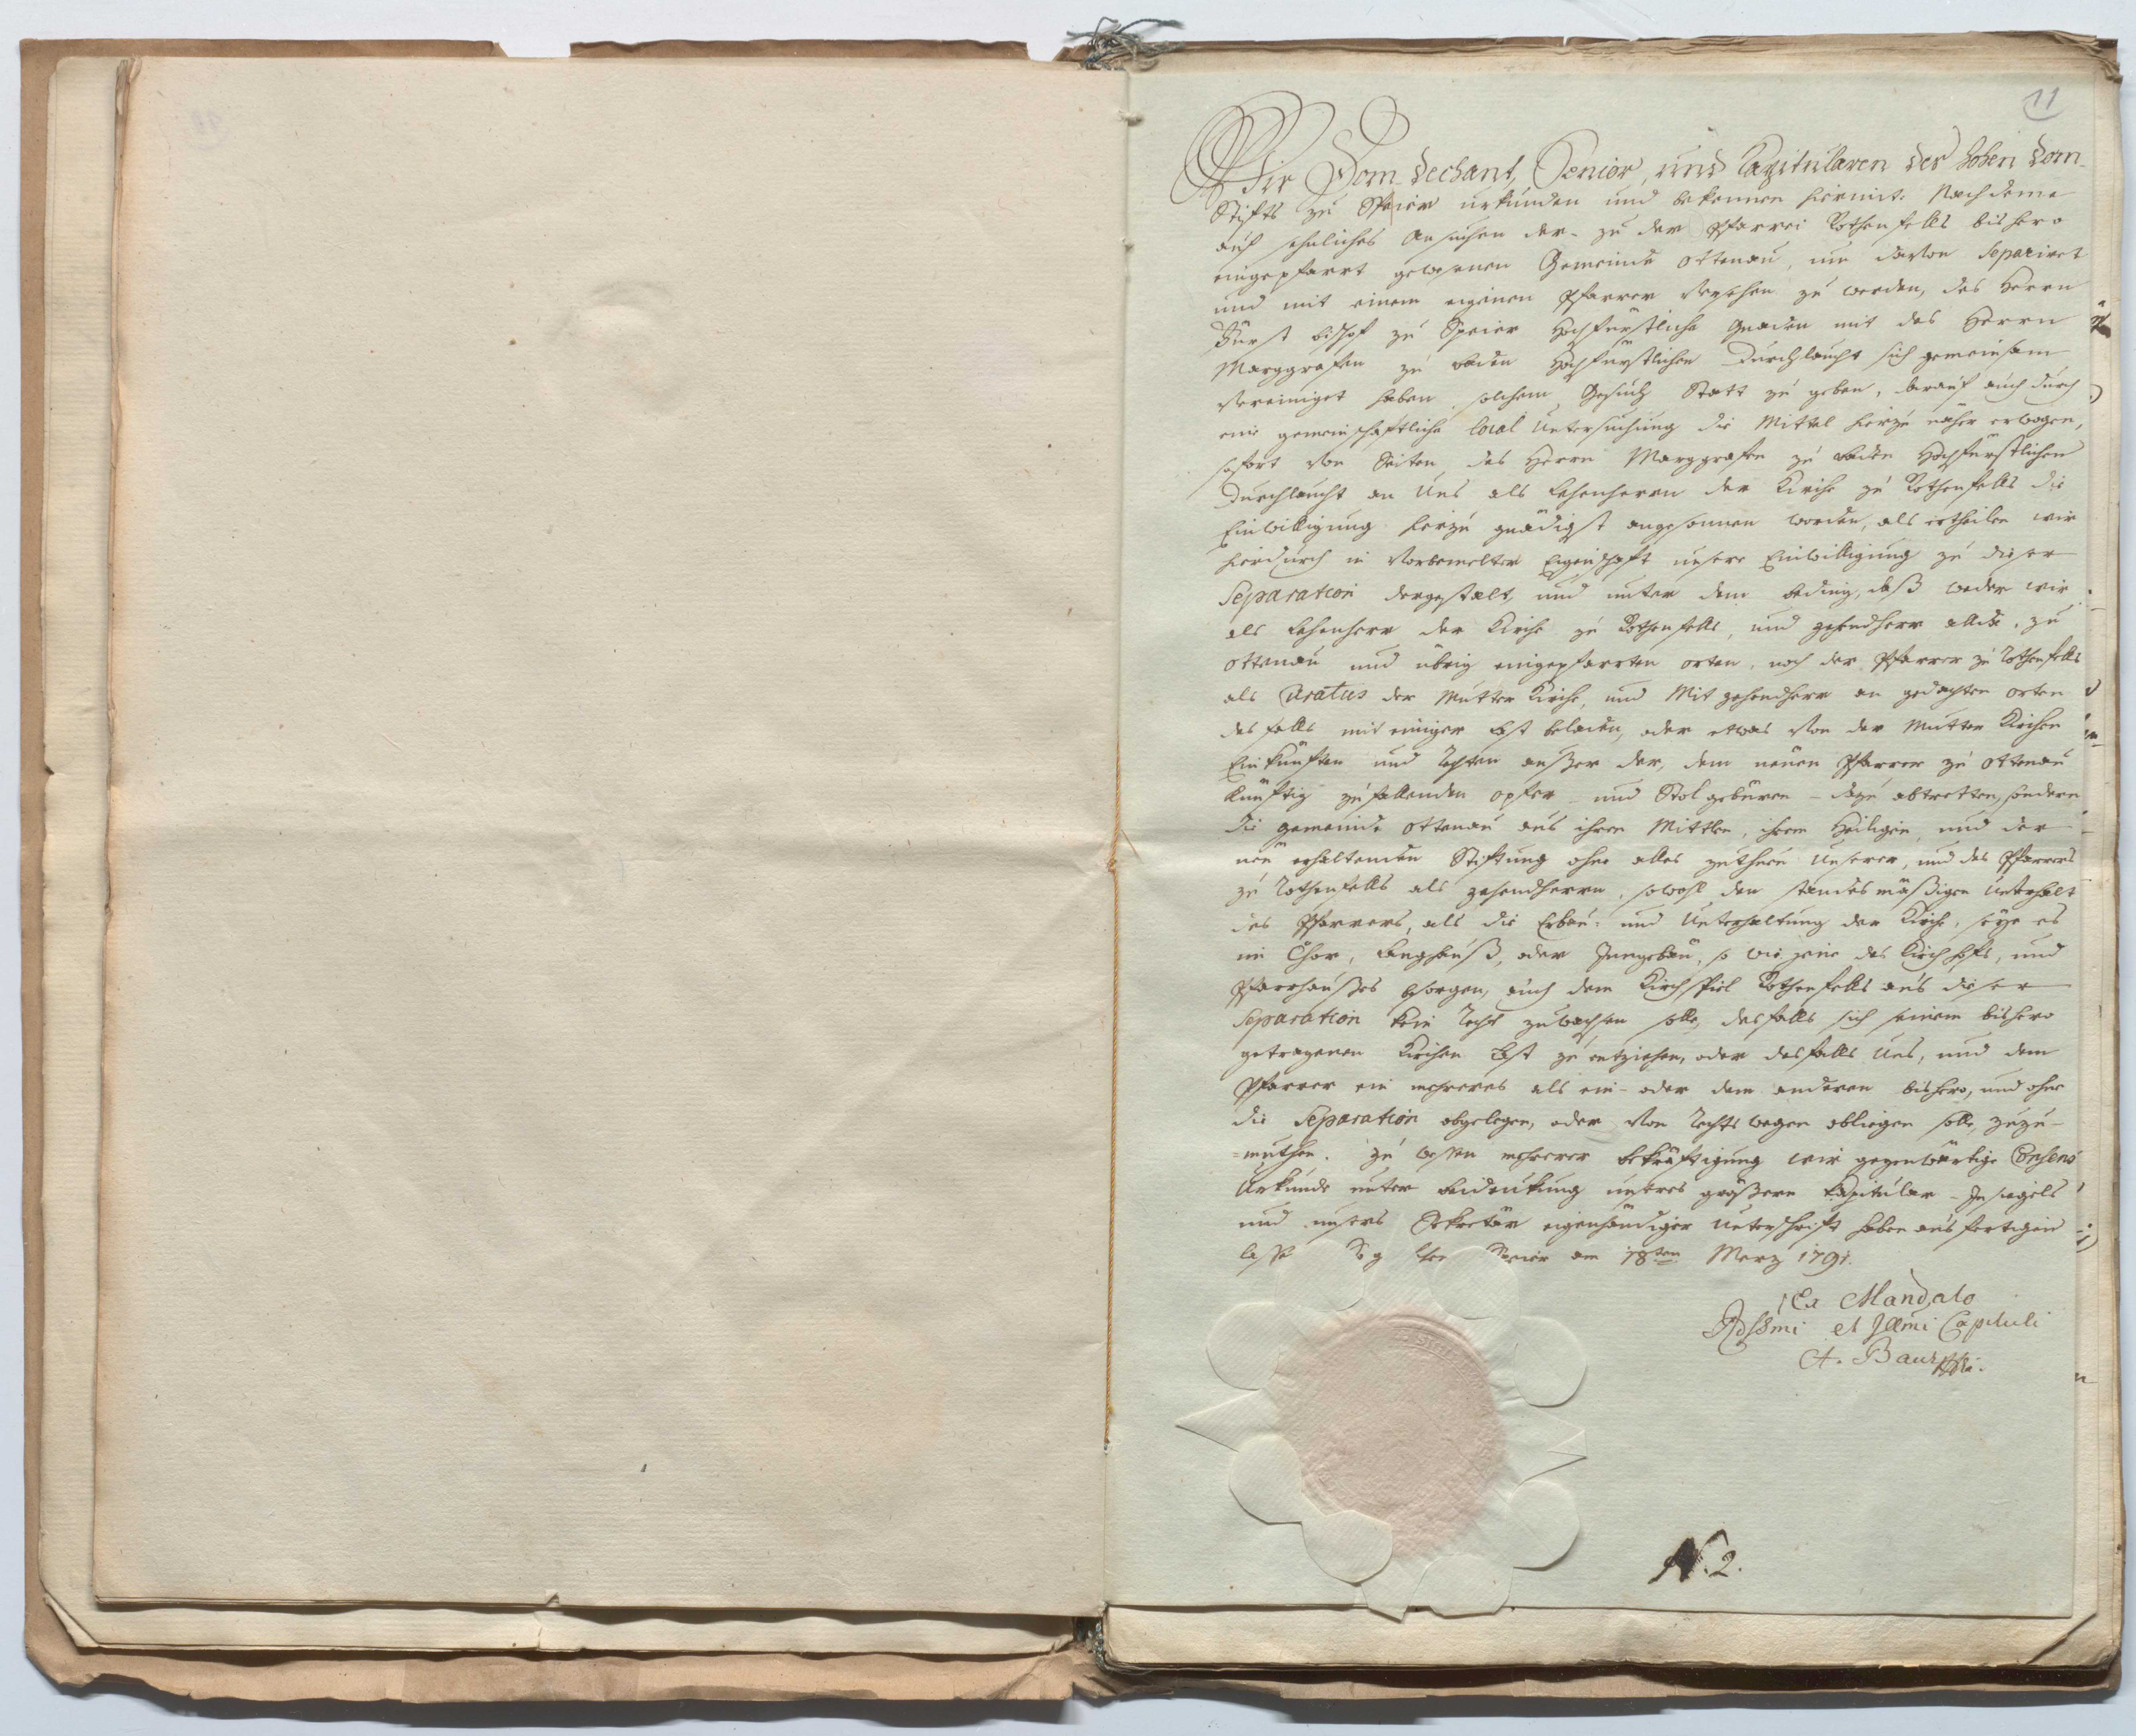 11
Wir Dom-Dechant, Senior, und Capitularen des hohen Dom-
Stifts zu Speier urkunden und bekennen hiermit. Nachdeme
auf sehnliches Ansuchen der- zu der Pfarrei Rothenfells bishero
eingepfarrt gewesenen Gemeinde Ottenau, um davon separiret
und mit einem eigenen Pfarrer versehen zu werden, des Herrn
Fürst Bischof zu Speier Hochfürstliche Gnaden mit des Herrn
Marggrafen zu Baden Hochfürstlichen Durchlaucht sich gemeinsam
vereiniget haben, solchem Gesuch Statt zu geben, darauf auch durch
eine gemeinschaftliche local Untersuchung die Mittel hierzu näher erwogen,
sofort von Seiten des Herrn Marggrafen zu Baden Hochfürstlichen
Durchlaucht an Uns als Zehendherrn der Kirche zu Rothenfells die
Einwilligung hierzu gnädigst angesonnen worden, als ertheilen wir
hierdurch in vorbemelter Eigenschaft unsere Einwilligung zu dieser
Separation dergestalt, und unter dem Beding, daß weder wir
als Zehenherr der Kirche zu Rothenfells, und Zehendherr allda, zu
Ottenau und übrig eingepfarrten Orten, noch der Pfarrer zu Rothenfells
als Curatus der Mutter Kirche, und Mit Zehendherr an gedachten Orten
desfalls mit einiger Last beladen, oder etwas von der Mutter Kirchen
Einkünften und Rechten ausser der, dem neuen Pfarrer zu Ottenau
künftig zufallenden Opfer- und Stolgebüren - dazu abtretten, sondern
die Gemeinde Ottenau aus ihren Mittlen, ihrem Heiligen und der
neu erhaltenden Stiftung ohne alles Zuthun Unserer, und des Pfarrers
zu Rothenfells als Zehendherrn, sowohl den standesmäßigen Unterhalt
des Pfarrers, als die Erbau- und Unterhaltung der Kirche, seye es
im Chor, Langhauß, oder Inngebäu, so wie jene des Kirchhofs, und
Pfarrhaußes besorgen, auch dem Kirchspiel Rothenfells aus dieser
Separation kein Recht zuwachsen solle, desfalls sich seinem bishero
getragenen Kirchen Last zu entziehen, oder desfalls Uns, und dem
Pfarrer ein mehreres als ein- oder dem anderen bishero, und ohne
die Separation obgelegen, oder von Rechts wegen obliegen solle, zuzu-
=muthen. Zu dessen mehrerer Bekräftigung wir gegenwärtige Consens
Urkunde unter Beidrukung unseres größeren Kapitular-Insiegels
und unsers Sekretär eigenhändiger Unterschrift haben ausfertigen
lassen Speier am 18ten Merz 1791.
Ex Mandato
Rdssmi et Illmi Capituli
A. Baur
N. 2.